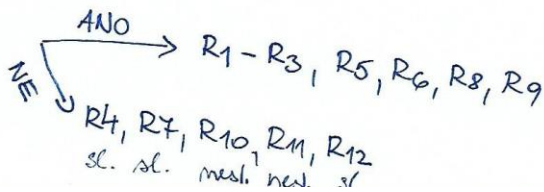 ANO
R1 - R3, R5, R6, R8, R9
NE
R4, R7, R10, R11, R12
sl. sl. nesl. nesl. sl.